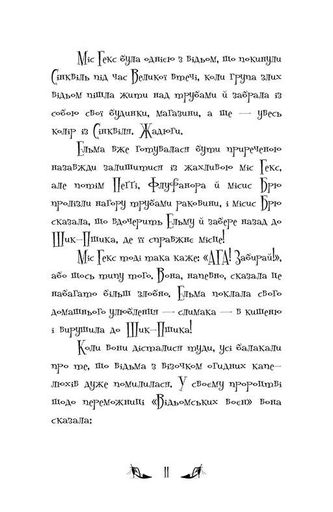 Міс Гекс була однією з відьом, що покинули
Сінквіль під час Великої втечі, коли група злих
відьом пішла жити над трубами й забрала із
собою свої будинки, магазини, а ще — увесь
колір із Сінквіля. Жадюги.
Ельма вже готувалася бути приреченою
назавжди залишитися із жахливою міс Гекс,
але потім Пеґґі, Флуфанора й місис Брю
пролізли нагору трубами раковини, і місис Брю
сказала, що вдочерить Ельму й забере назад до
Шик–Пшика, де її справжнє місце!
Міс Гекс тоді така каже «АГА! Забирай!»,
або щось типу того. Вона, напевно, сказала це
набагато більш злобно. Ельма поклала свого
домашнього улюбленця — слимака — в кишеню
і вирушила до Шик–Пшика!
Коли вони дісталися туди, усі балакали
про те, що відьма з візочком огидних капе-
люхів дуже помилилася. У своєму пророцтві
щодо переможниці «Відьомських воєн» вона
сказала:
11